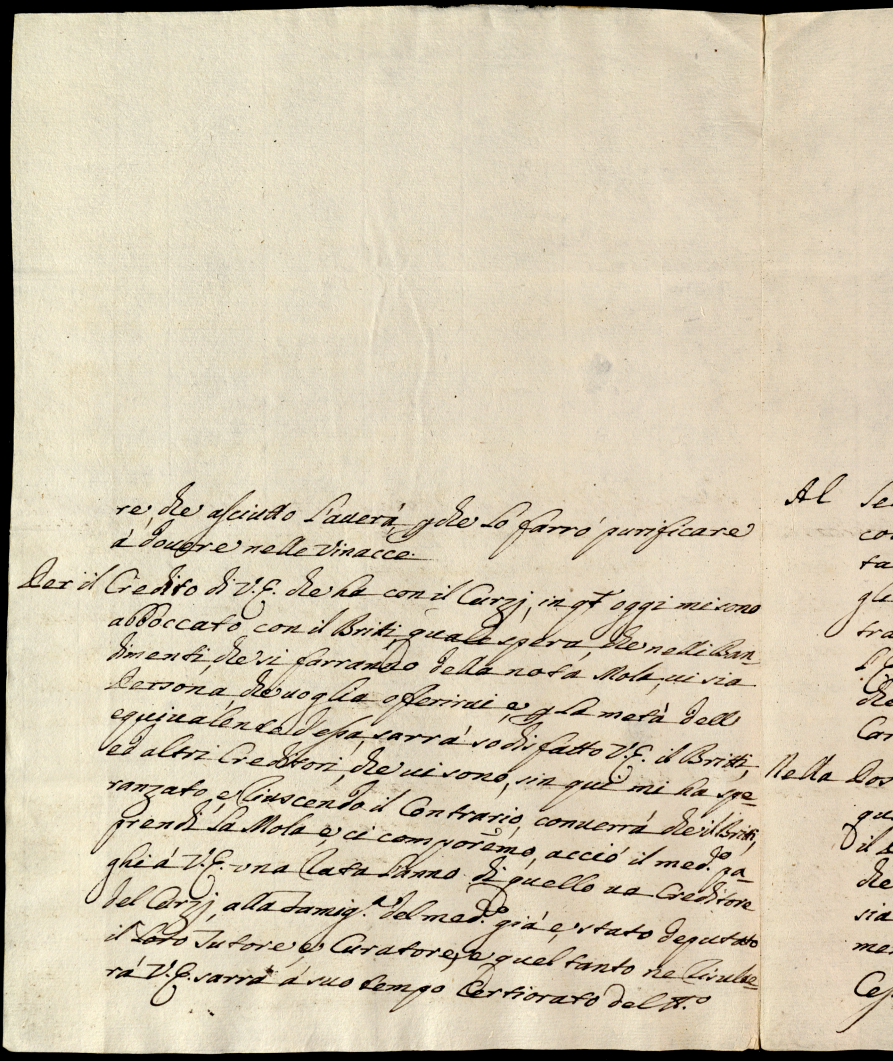 re, che asciutto l'averá, p che lo farró purificare
á dovere nelle Vinacce.
Per il Credito di V.E. che ha con il Curzj, in qto oggi mi sono
abboccato con il Britti, quale spera, che nelli Ban-
dimenti, che si farranno della nota Mola, vi sia
Persona, che voglia offerirvi, e p la metá dell
equivalenza d'essa, sarrá sodisfatto V.E. il Britti,
ed altri Creditori, che vi sono, sin qui mi ha spe-
ranzato, e, Riuscendo il Contrario, converrá che il Britti,
prendi la Mola e, ci comporémo, acció il med.o pa-
ghi á V.E. una Rata l'anno di quello va Creditore
del Curzj, alla Famig.a del med.o giá e, stato deputato
il Loro Tutore, e Curatore, e quel tanto ne Risulte-
rá V.E. sarrá á suo tempo Certiorato del t.o
Al Se
co
ta
gli
tra
L'E
che
Car
Nella Pos
qu
il
che
sia
me
Ces